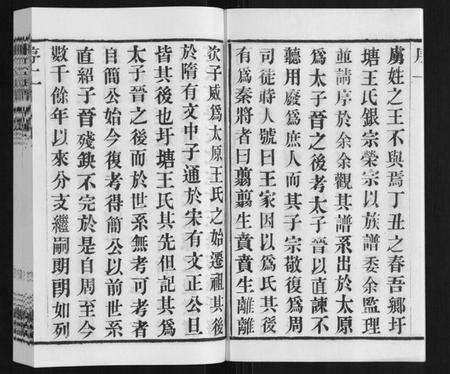 虜姓之王不與焉丁丑之春吾鄉圩
塘王氏銀宗榮宗以族譜委余監理
並請序於余余觀其譜系出於太原
爲太子晉之後考太子晉以直諫不
聽用廢爲庶人而其子宗敬復爲周
司徒蒔人號曰王家因以爲氏其後
有爲秦將者曰翦翦生賁賁生離離
次子威爲太原王氏之始遷祖其後
於隋有文中子通於宋有文正公旦
皆其後也圩塘王氏其先但記其爲
太子晉之後而於世系無考可考者
自簡公始今復考得簡公以前世系
直紹子晉殘鈌不完於是自周至今
數千餘年以來分支繼嗣朗朗如列
序二